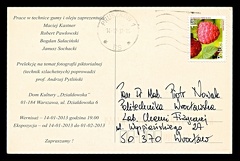 Prace w technice gumy i oleju zaprezentują
Maciej Kastner
Robert Pawłowski
Bogdan Sałaciński
Janusz Sochacki
Prelekcję na temat fotografii piktorialnej
(technik szlachetnych) poprowadzi
prof. Andrzej Pytliński
Dom Kultury „Działdowska"
01-184 Warszawa, ul. Działdowska 6
Wernisaż - 14-01-2013 godzina 19:00
Ekspozycja - od 14-01-2013 do 01-02-2013
Zapraszamy !
Pan Dr Hab. Piotr Nowak
Politechnika Wrocławska
Zakł. Chemii Fizycznej
ul. Wyspiańskiego 27
50-370 Wrocław